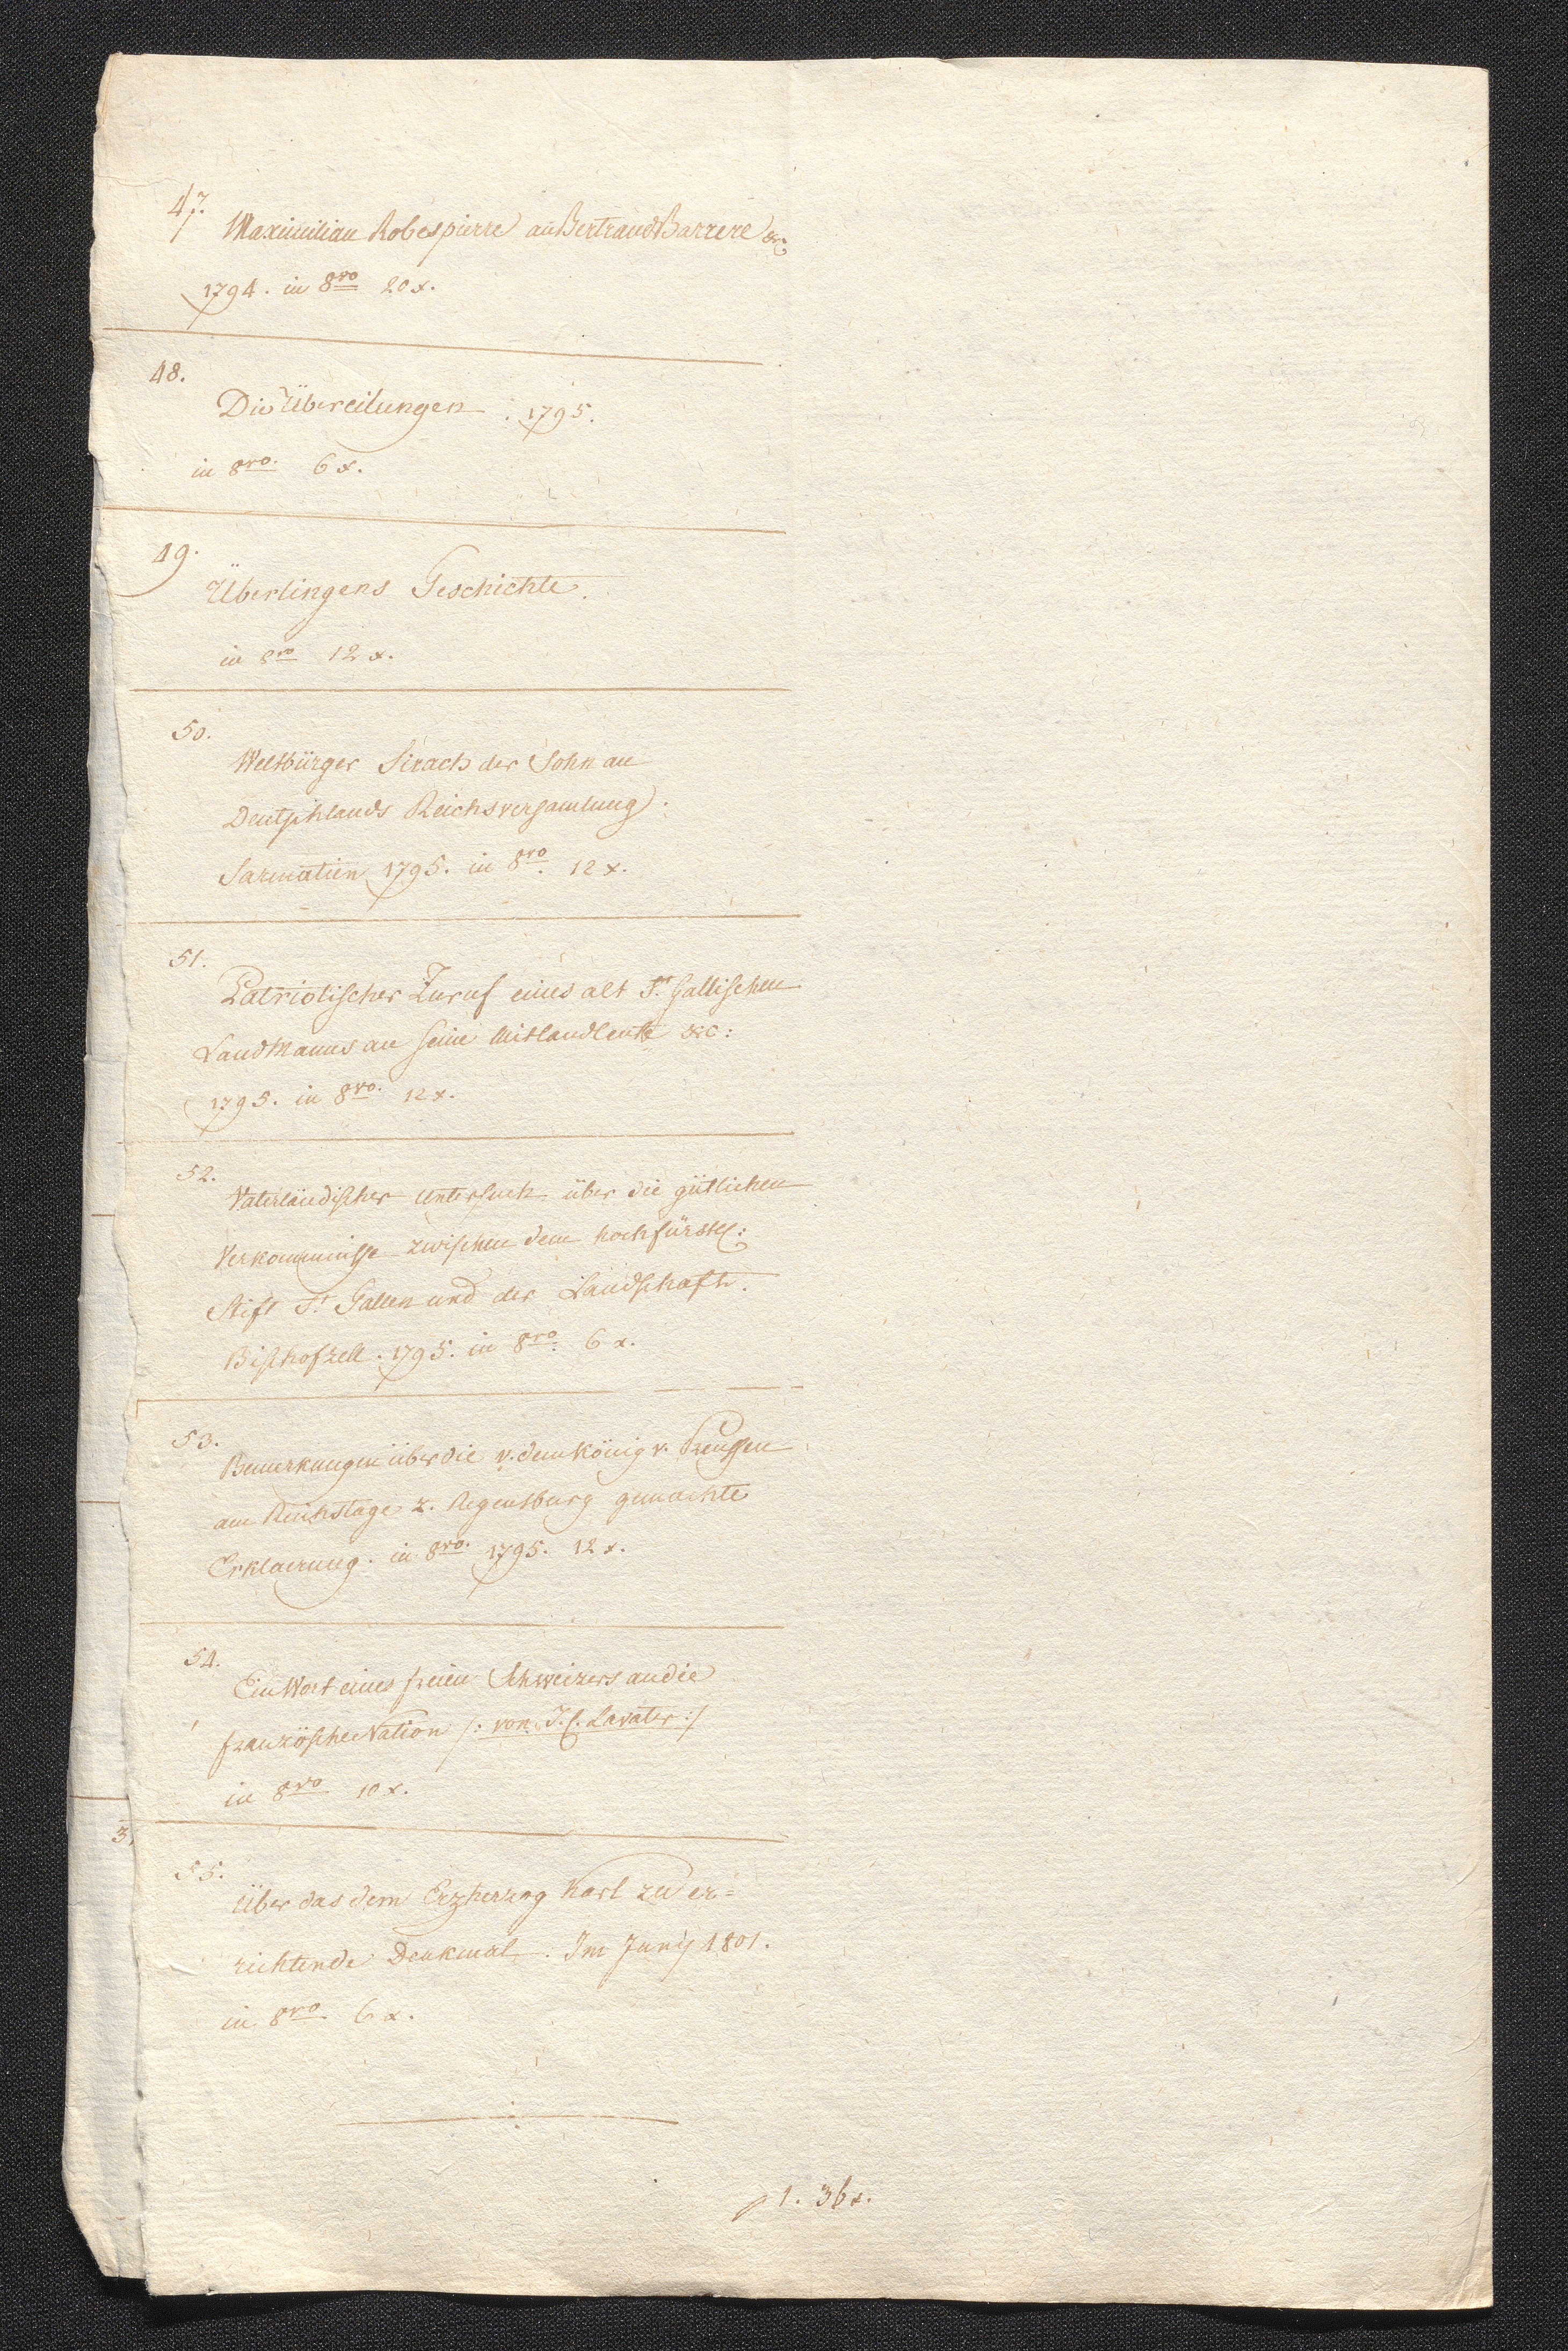 47.
Maximilian Robespierre an Bertrand Barrere &c:
1794. in 8vo 20 x.
48.
Die Übereilungen. 1795.
in 8vo. 6 x.
49.
Überlingens Geschichte.
in 8vo 12 x.
50.
Weltbürger Sirach der Sohn an
Deutschlands Reichsversamlung.
Sarmatien 1795. in 8vo. 12 x.
51.
Patriotischer Zuruf eines alt St. Gallischen
Landmanns an seine Mitlandleute &c:
1795. in 8vo. 12 x.
52.
Vaterländischer Untersuch über die gütlichen
Verkommnisse zwischen dem hochfürstl:
Stift St. Gallen und der Landschaft.
Bischofzell. 1795. in 8vo. 6 x.
53.
Bemerkungen über die v. dem König v. Preussen
am Reichstage z. Regensburg gemachte
Erklaerung. in 8vo. 1795. 12 x.
54.
Ein Wort eines freien Schweizers an die
französche Nation /: von J. C. Lavater :/
in 8vo 10 x.
3.
55.
Über das dem Erzherzog Karl zu er=
richtende Denkmal. Im Junij 1801.
in 8vo 6 x.
f 1. 36 x.